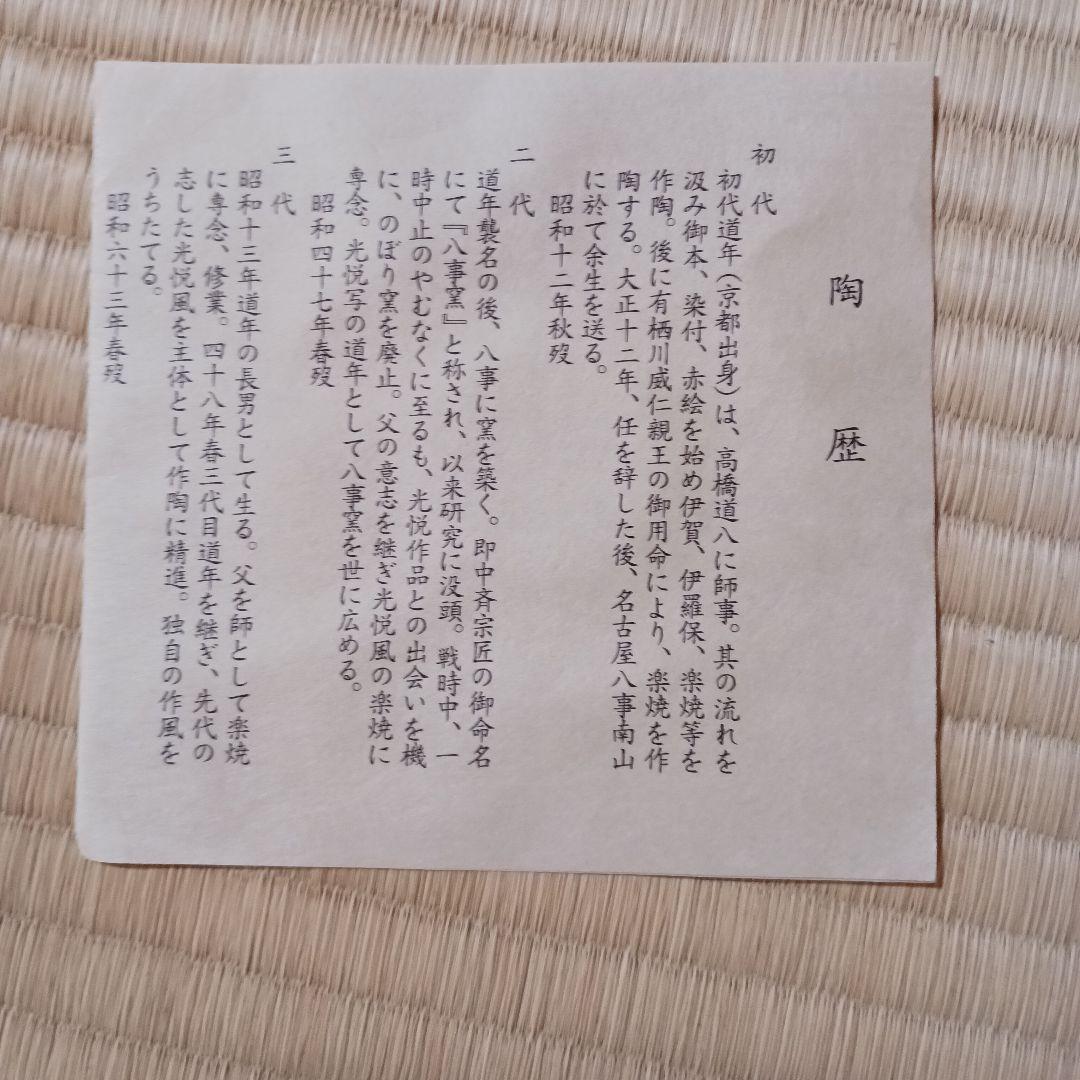 陶歴
初代
初代道年（京都出身）は、高橋道八に師事。其の流れを
汲み御本、染付、赤絵を始め伊賀、伊羅保、楽焼等を
作陶。後に有栖川威仁親王の御用命により、楽焼を作
陶する。大正十二年、任を辞した後、名古屋八事南山
に於て余生を送る。
昭和十二年秋歿
二代
道年襲名の後、八事に窯を築く。即中斉宗匠の御命名
にて『八事窯』と称され、以来研究に没頭。戦時中、一
時中止のやむなくに至るも、光悦作品との出会いを機
に、のぼり窯を廃止。父の意志を継ぎ光悦風の楽焼に
専念。光悦写の道年として八事窯を世に広める。
昭和四十七年春歿
三代
昭和十三年道年の長男として生る。父を師として楽焼
に専念、修業。四十八年春三代目道年を継ぎ、先代の
志した光悦風を主体として作陶に精進。独自の作風を
うちたてる。
昭和六十三年春歿